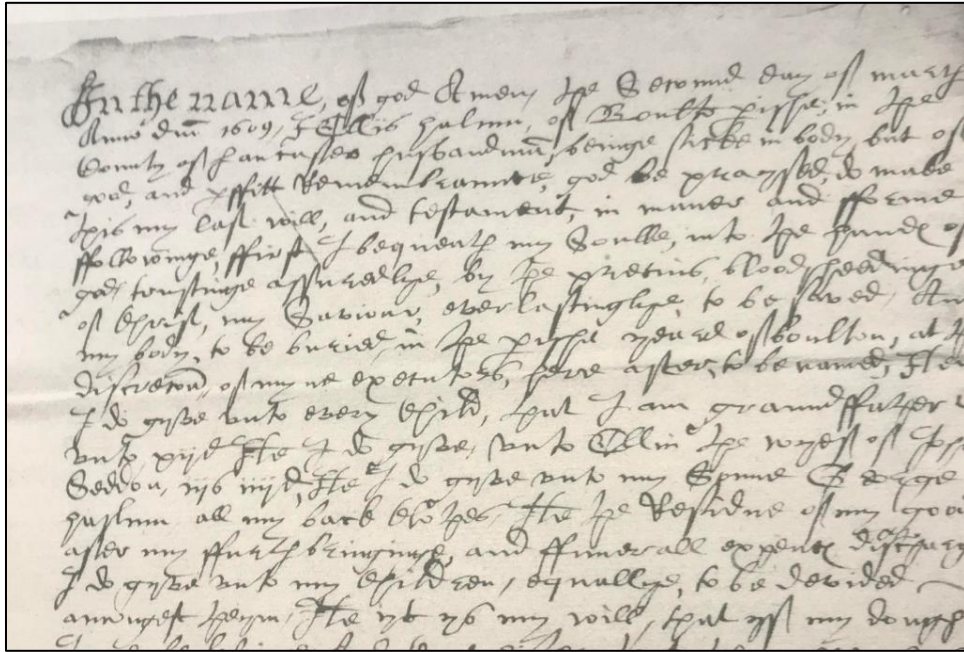 In the name, of god Amen, the Second day of march
Anno dni 1609, I Ellis haslum, of Boulto pishe, in the
County of Lancaster husbandma, beinge sicke in body but of
god, and pffitt Remembrannce, god be praysed, do make
this my last will, and testament, in maner and fforme
ffollowinge, ffirst I bequeath my Soulle, into the hands of
god, trustinge assuredlye, by the pretius, bloodsheedinge
of Christ, my Saviour, everlastinglye, to be saved, And
my body, to be buried, in the pishe yeard of boulton, at the
discretion, of myne executors, here after, to be named, Ite
I do gyve unto every Child, that I am grandffather
unto xijd Ite I do gyve, unto Ellin the wyeff of
Seddon, iijs iiijd, Ite I do gyve unto my Sonne George
haslum all my back clothes, Ite the Residue of my good
after my ffurthbringinge, and ffunerall expents discharg
I do gyve unto my Children, equallye, to be devided
amongest theym, Ite yt ys my will, that yff my dough